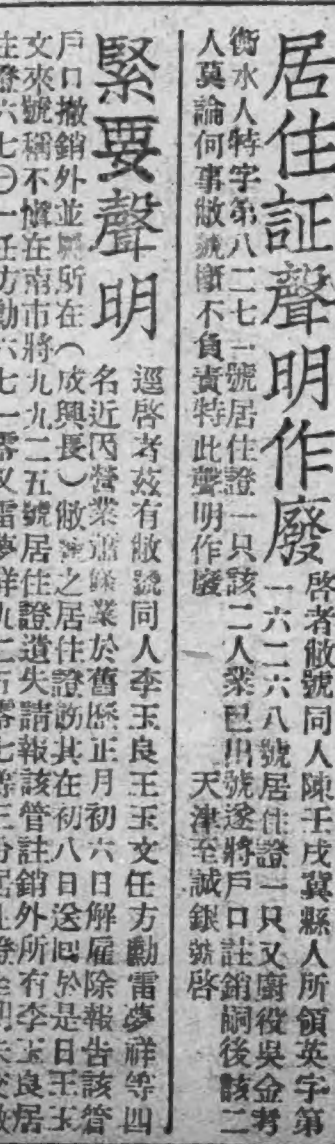 居住証聲明作廢
啓者敝號同人陳壬戌冀縣人所領英字第
一六二六八號居住證一只又廚役吳金考
衡水人特字第八二七一號居住證一只該二人業已出號遂將戶口註銷嗣後該二
人莫論何事敝號慨不負責特此聲明作廢
天津至誠銀號啓
緊要聲明
逕啓者茲有敝號同人李玉良王玉文任方勳雷夢祥等四
名近因營業蕭條業於舊歷正月初六日解雇除報告該管
戶口撤銷外並屬所在（成興長）敝號之居住證飭其在初八日送回於是日王玉
文來號稱不愼在南市將九九二五號居住證遺失請報該管註銷外所有李玉良居
住證六七〇一任方勳六七一零又雷夢祥九二百零七等三份居住證